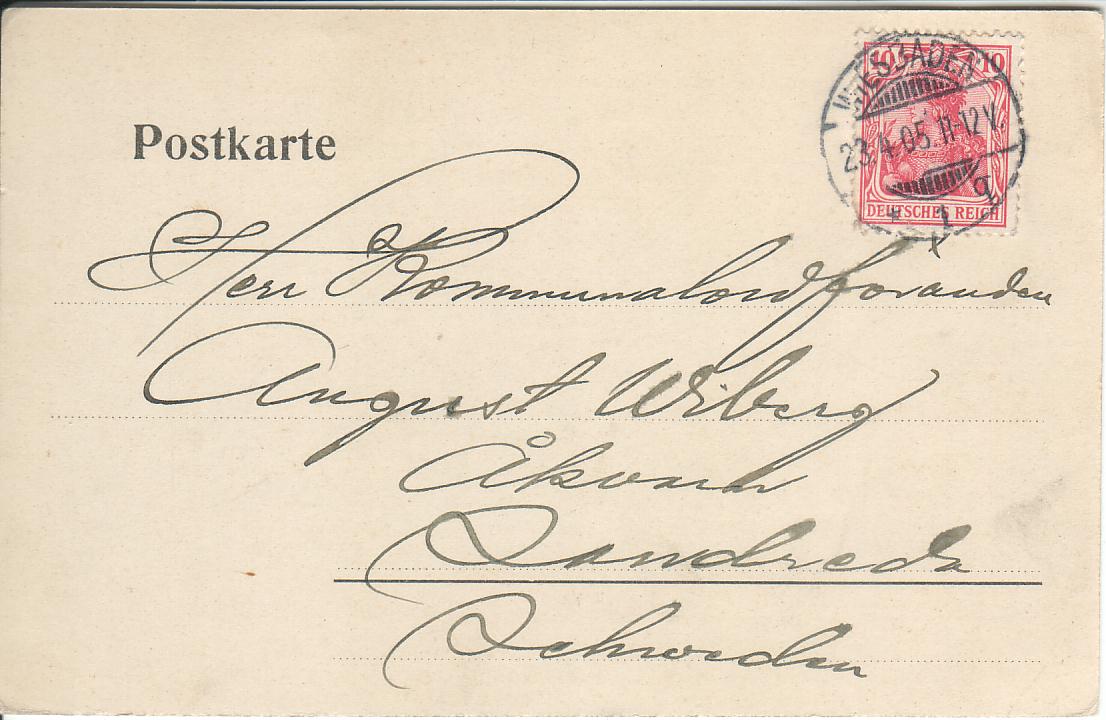 Postkarte
10 10
WIESBADEN
23.4.05.11-12V.
* 1 g
DEUTSCHES REICH
Herr Kommunalordföranden
August Wiberg
Åkvarn
Sandreda
Schweden